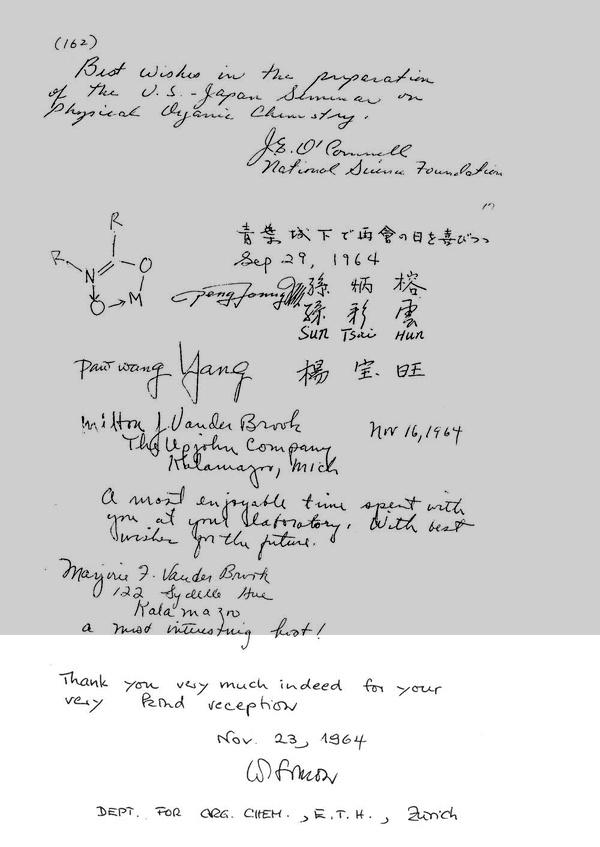 (162)
Best wishes in the preparation
of the U.S.-Japan Seminar on
Physical Organic Chemistry.
J.E. O'Connell
National Science Foundation
R
R N O
O→M
青葉城下で再會の日を喜びつつ
Sep 29, 1964
孫 炳 榕
孫 彩 雲
Sun Tsai Hun
Pauwang Yang 楊 宝 旺
Milton J. Vander Brook Nov 16, 1964
The Upjohn Company
Kalamazoo, Mich
A most enjoyable time spent with
you at your laboratory. With best
wishes for the future.
Marjorie F. Vander Brook
122 Sydelle Ave
Kalamazoo
a most interesting host!
Thank you very much indeed for your
very kind reception
Nov. 23, 1964
W. Simon
DEPT. FOR ORG. CHEM., E.T.H., Zürich